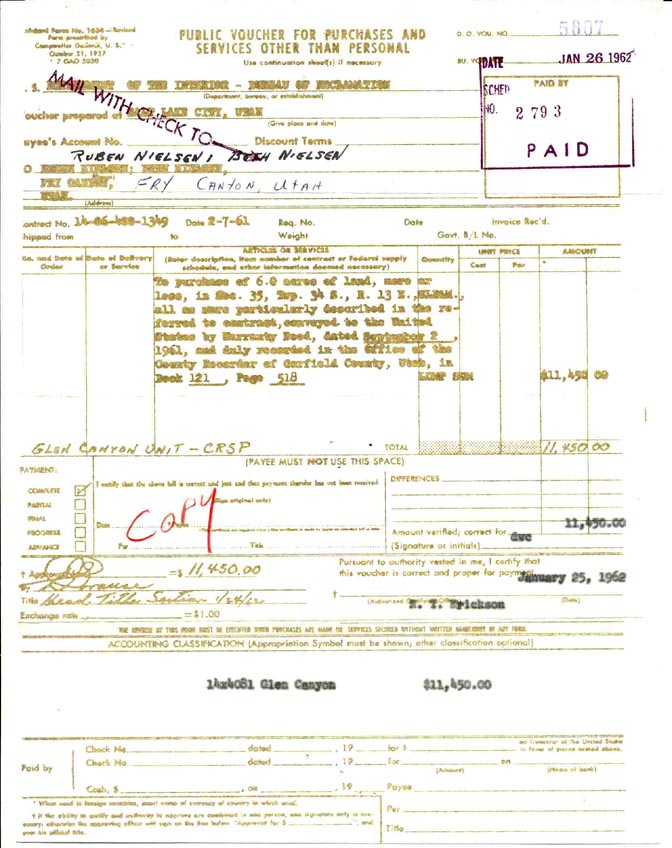 Form prescribed by
Comptroller General, U. S.
October 31, 1957
7 GAO 5030
PUBLIC VOUCHER FOR PURCHASES AND
SERVICES OTHER THAN PERSONAL
Use continuation sheet(s) if necessary
D. O. VOU. NO.
5807
DATE JAN 26 1962
SCHED
NO. 2 793
PAID BY
PAID
OF THE INTERIOR - BUREAU OF RECLAMATION
(Department, bureau, or establishment)
MAIL WITH CHECK TO
oucher prepared at LAKE CITY, UTAH
(Give place and date)
Account No. Discount Terms
RUBEN NIELSEN; BETH NIELSEN
FRY CANYON, FRY CANYON, UTAH
UTAH
(Address)
ontract No. 14-06-400-1349 Date 2-7-61 Req. No. Date Invoice Rec'd.
hipped from to Weight Govt. B/L No.
No. and Date of Order
Date of Delivery or Service
ARTICLES OR SERVICES
(Enter description, item number of contract or Federal supply
schedule, and other information deemed necessary)
Quantity
UNIT PRICE
Cost Per
AMOUNT
To purchase of 6.0 acres of land, more or
less, in Sec. 35, Twp. 34 S., R. 13 E.,
all as more particularly described in the re-
ferred to contract, conveyed to the United
States by Warranty Deed, dated September 2,
1961, and duly recorded in the Office of the
County Recorder of Garfield County, Utah, in
Book 121, Page 518 LUMP SUM $11,450 00
GLEN CANYON UNIT - CRSP TOTAL 11,450.00
(PAYEE MUST NOT USE THIS SPACE)
PAYMENT:
COMPLETE
PARTIAL
FINAL
PROGRESS
ADVANCE
I certify that the above bill is correct and just and that payment therefor has not been received.
(Sign original only)
COPY
Date Payee
Per Title
DIFFERENCES
11,450.00
Amount verified; correct for
(Signature or initials) dwc
† Approved = $ 11,450.00
Title Head, Title Section
Exchange rate =$1.00
Pursuant to authority vested in me, I certify that
this voucher is correct and proper for payment.
January 25, 1962
† E. T. Erickson
(Date)
ACCOUNTING CLASSIFICATION (Appropriation Symbol must be shown; other classification optional)
14x4081 Glen Canyon $11,450.00
Paid by
Check No. dated , 19 for $ on Treasurer of the United States
in favor of payee named above.
Check No. dated , 19 for on
(Amount) (Name of bank)
Cash, $ , on , 19 Payee
* When used in foreign countries, insert name of currency of country in which used.
† If the ability to certify and authority to approve are combined in one person, one signature only is nec-
essary; otherwise the approving officer will sign on the line below "Approved for $ ", and
over his official title.
Per
Title